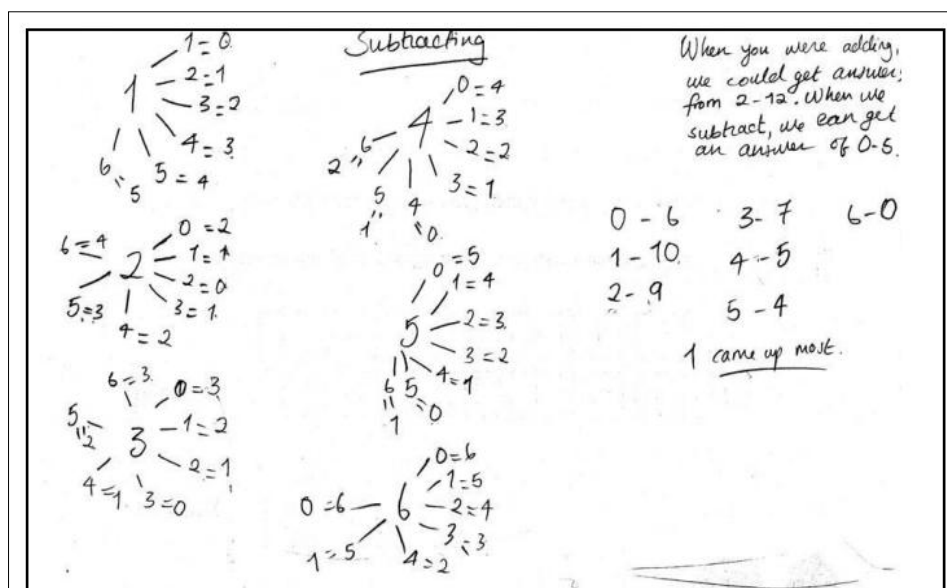 Subtracting
1
1 = 0
2 = 1
3 = 2
4 = 3
5 = 4
6 = 5
2
0 = 2
1 = 1
2 = 0
3 = 1
4 = 2
5 = 3
6 = 4
3
0 = 3
1 = 2
2 = 1
3 = 0
4 = 1
5 = 2
6 = 3
4
0 = 4
1 = 3
2 = 2
3 = 1
4 = 0
5 = 1
6 = 2
5
0 = 5
1 = 4
2 = 3
3 = 2
4 = 1
5 = 0
6 = 1
6
0 = 6
1 = 5
2 = 4
3 = 3
4 = 2
1 = 5
0 = 6
When you were adding,
we could get answers
from 2-12. When we
subtract, we can get
an answer of 0-5.
0 - 6 3 - 7 6 - 0
1 - 10 4 - 5
2 - 9
5 - 4
1 came up most.